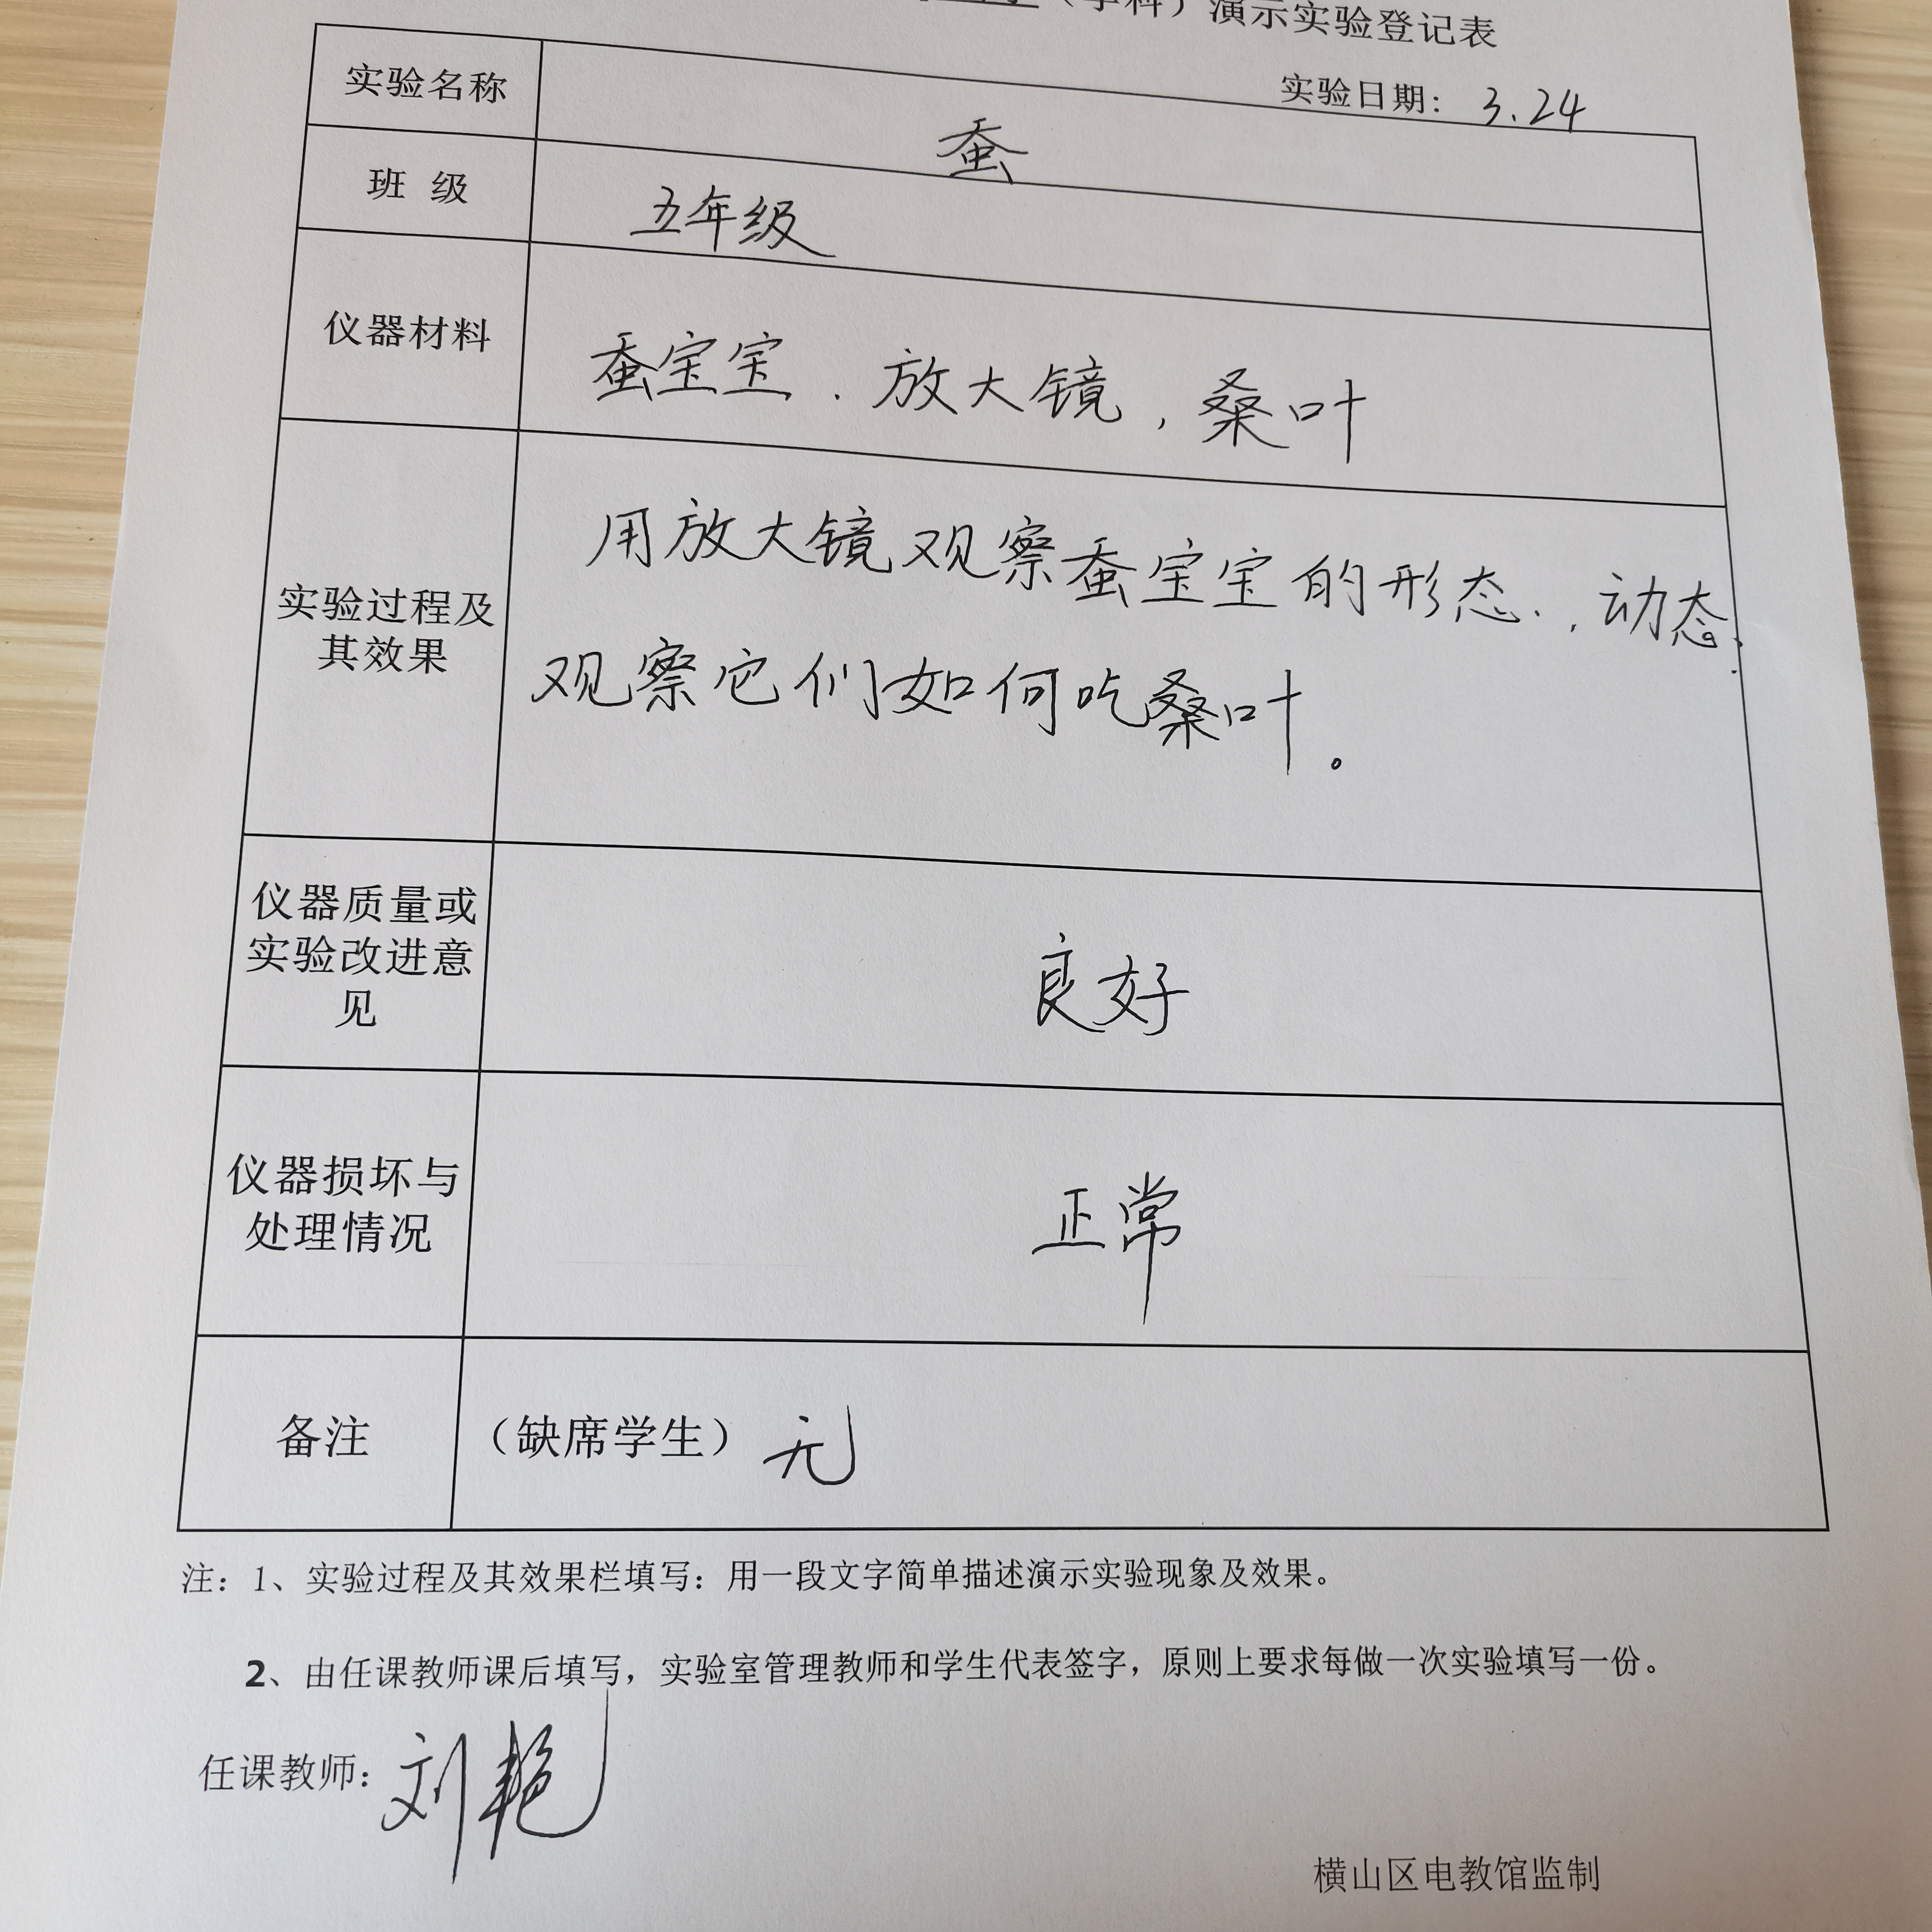 （学科）演示实验登记表
实验日期： 3.24
实验名称 蚕
班 级 五年级
仪器材料 蚕宝宝.放大镜,桑叶
实验过程及
其效果
用放大镜观察蚕宝宝的形态.,动态.
观察它们如何吃桑叶。
仪器质量或
实验改进意
见
良好
仪器损坏与
处理情况
正常
备注 （缺席学生） 无
注：1、实验过程及其效果栏填写：用一段文字简单描述演示实验现象及效果。
2、由任课教师课后填写，实验室管理教师和学生代表签字，原则上要求每做一次实验填写一份。
任课教师：刘艳
横山区电教馆监制